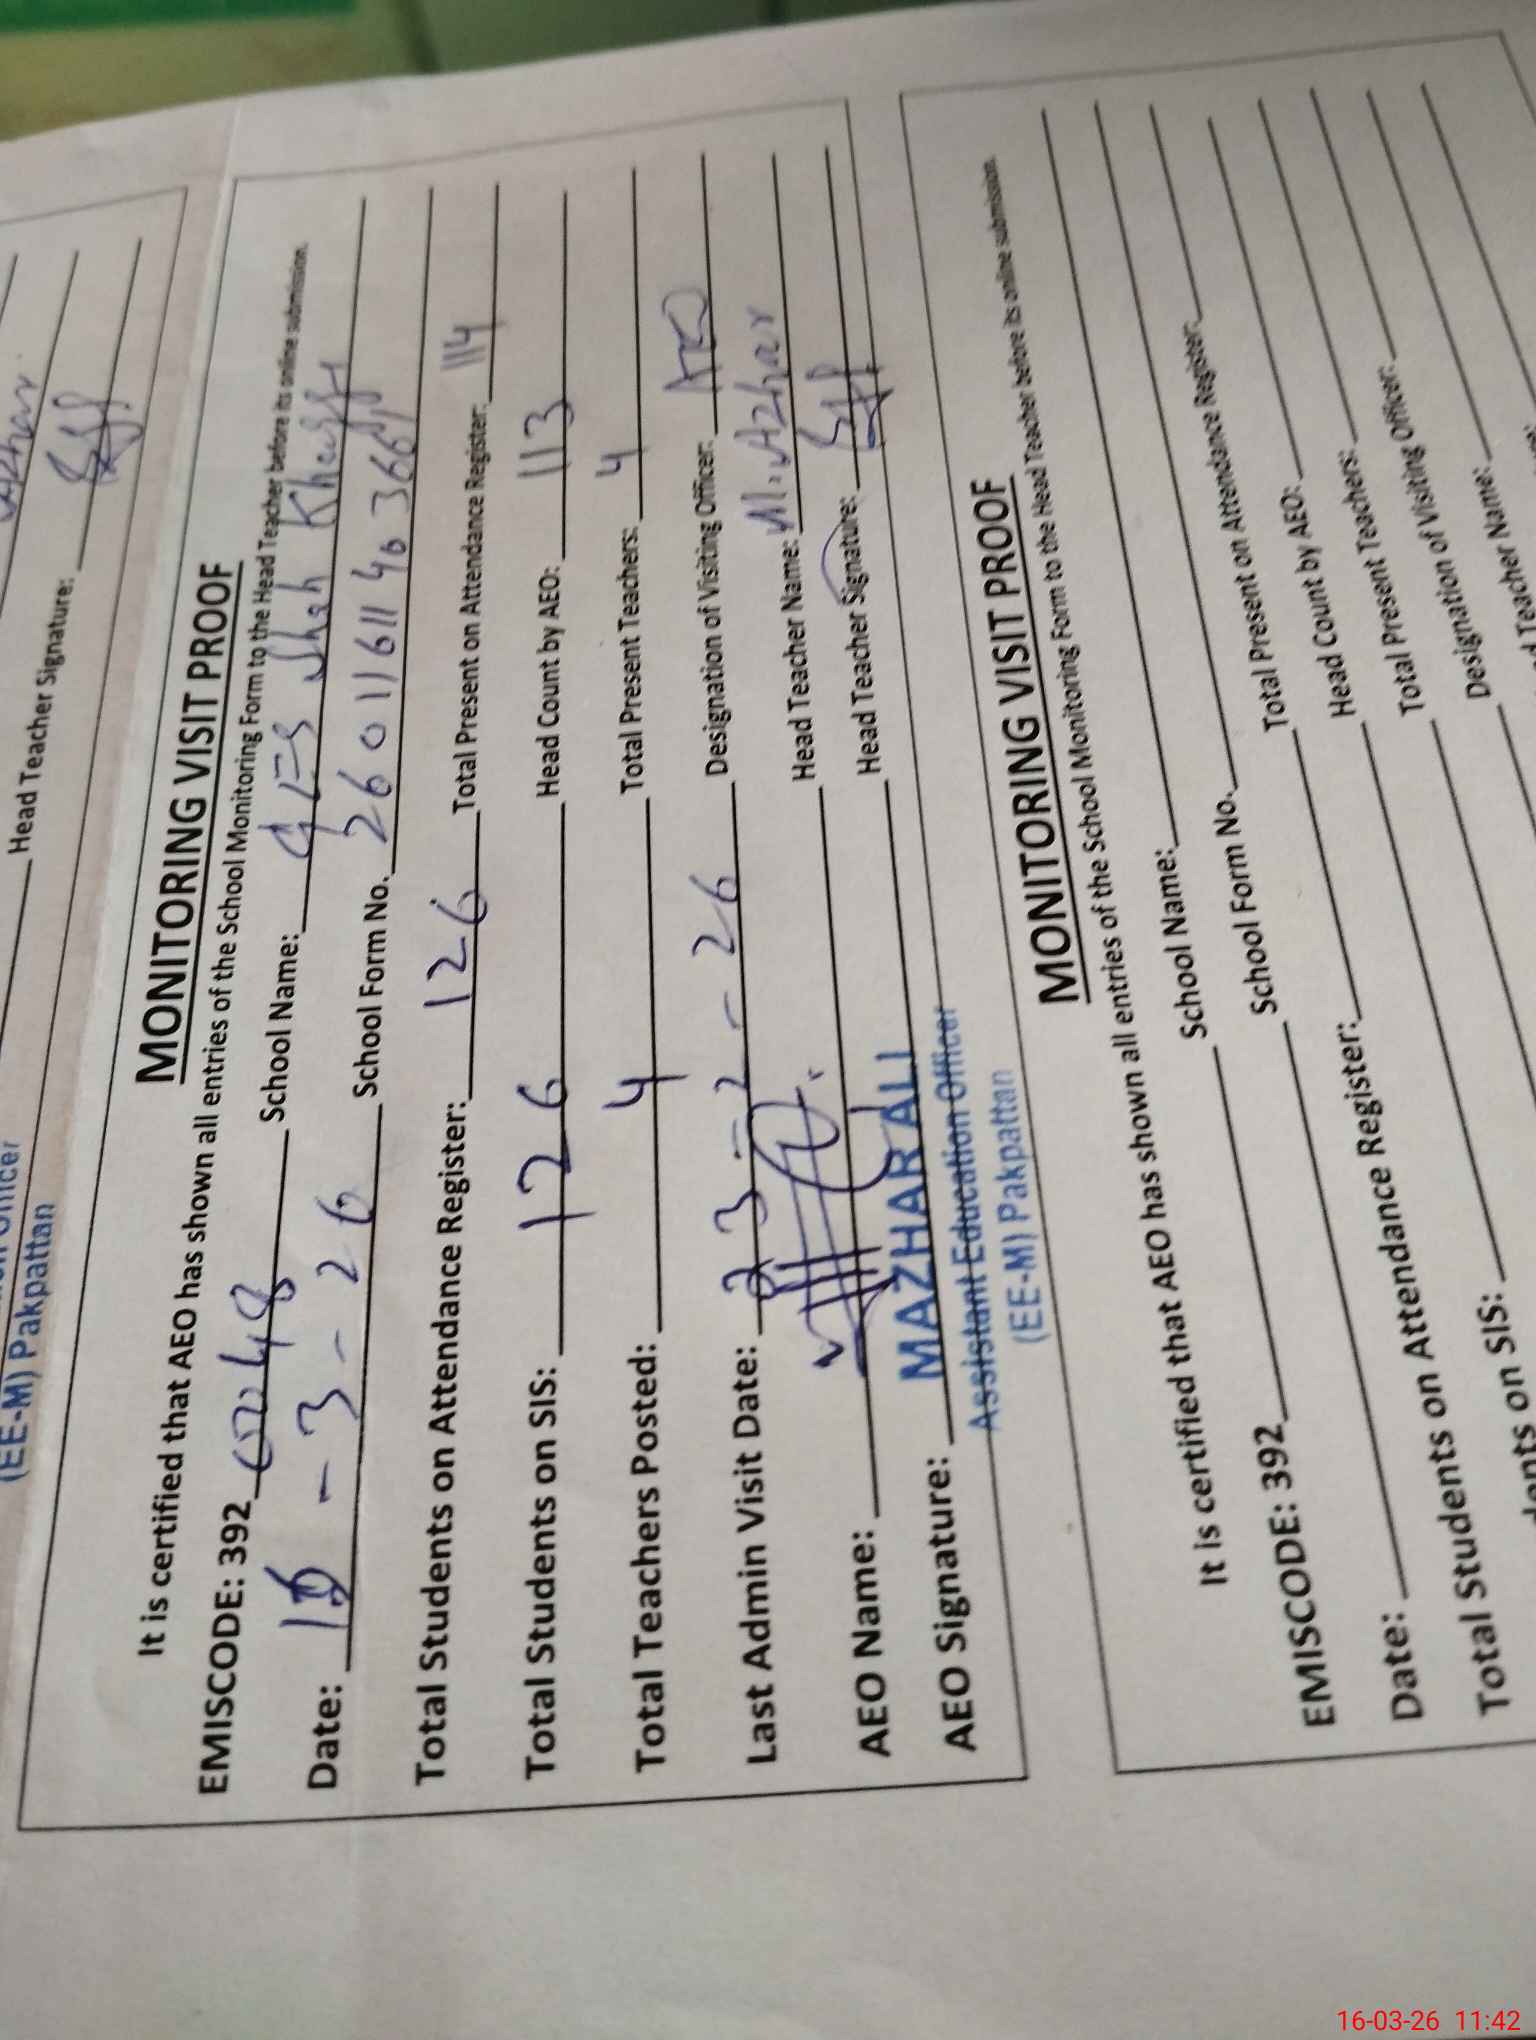 Azhar
Head Teacher Signature:
Officer
(EE-M) Pakpattan
MONITORING VISIT PROOF
It is certified that AEO has shown all entries of the School Monitoring Form to the Head Teacher before its online submission.
EMISCODE: 392 School Name: Shah
Date: - 3 - 26 School Form No.
Total Students on Attendance Register: 126 Total Present on Attendance Register: 114
Total Students on SIS: 126 Head Count by AEO: 113
Total Teachers Posted: 4 Total Present Teachers: 4
Last Admin Visit Date: 23 - 2 - 26 Designation of Visiting Officer: AEO
AEO Name: Head Teacher Name: M. Azhar
AEO Signature: Head Teacher Signature:
MAZHAR ALI
Assistant Education Officer
(EE-M) Pakpattan
MONITORING VISIT PROOF
It is certified that AEO has shown all entries of the School Monitoring Form to the Head Teacher before its online submission.
EMISCODE: 392 School Name:
Date: School Form No.
Total Students on Attendance Register: Total Present on Attendance Register:
Total Students on SIS: Head Count by AEO:
Total Present Teachers:
Designation of Visiting Officer:
Teacher Name:
16-03-26 11:42